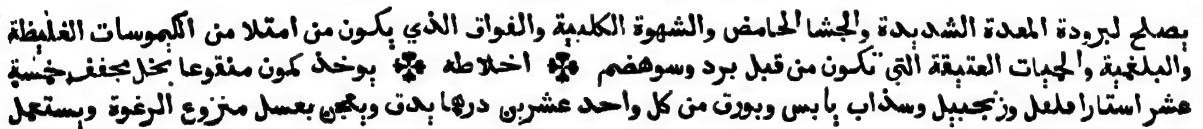 يصلح لبرودة المعدة الشديدة والجشا الحامض والشهوة الكلبية والفواق الذي يكون من امتلا من الكيموسات الغليظة
والبلغمية والحميات العتيقة التي تكون من قبل برد وسوهضم ✤ اخلاطه ✤ يوخذ كمون منقوعا بخل مجفف خمسة
عشر استارا فلفل وزنجبيل وسذاب يابس وبورق من كل واحد عشرين درهما يدق ويعجن بعسل منزوع الرغوة ويستعمل